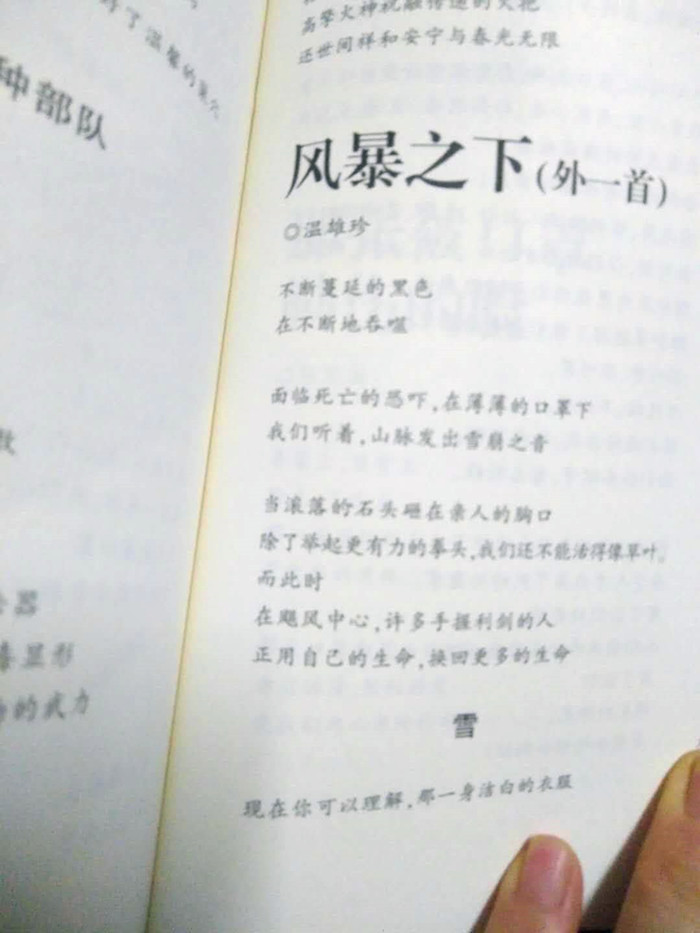 温馨的
种部队
器
显形
的武力
高擎火神祝融传递的火把
还世间祥和安宁与春光无限
风暴之下(外一首)
◎温雄珍
不断蔓延的黑色
在不断地吞噬
面临死亡的恐吓,在薄薄的口罩下
我们听着,山脉发出雪崩之音
当滚落的石头砸在亲人的胸口
除了举起更有力的拳头,我们还不能活得像草叶。
而此时
在飓风中心,许多手握利剑的人
正用自己的生命,换回更多的生命
雪
现在你可以理解,那一身洁白的衣服